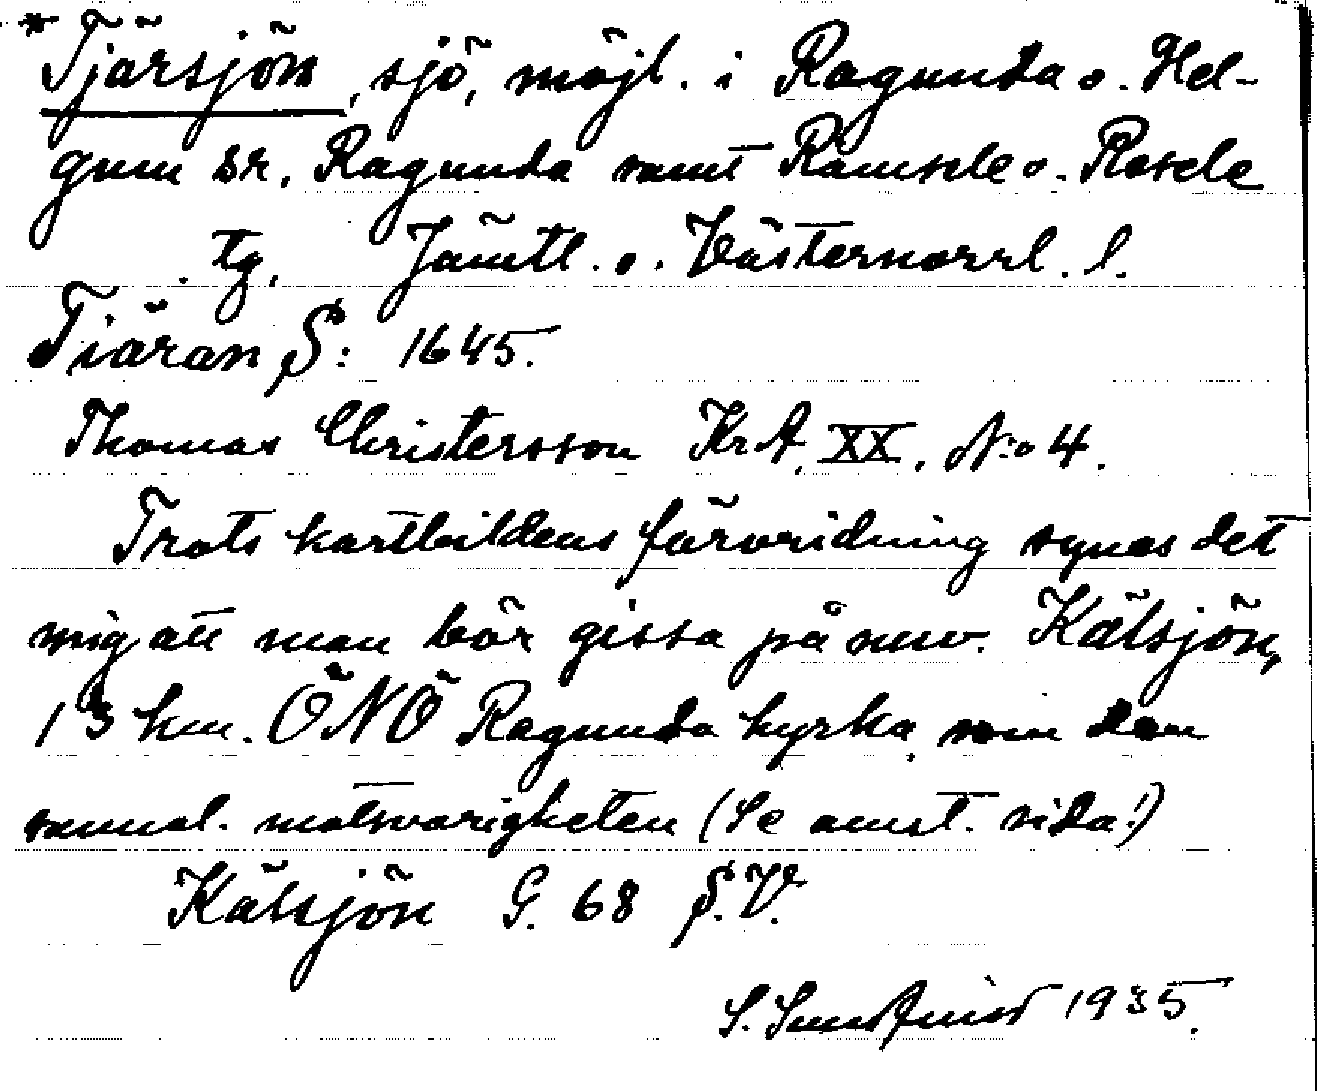 *Tjärsjön, sjö, möjl. i Ragunda o. Hel-
gum sr. Ragunda samt Ramsele o. Resele
tg. Jämtl. o. Västernorrl. l.
Tiäran S: 1645.
Thomas Christersson KrA, XX, N:o 4.
Trots kartbildens förvridning synes det
mig att man bör gissa på nuv. Kälsjön,
13 km. ÖNÖ Ragunda kyrka som den
sannol. motsvarigheten (Se omst. sida!)
Kälsjön G. 68 S.V.
S. 1935.